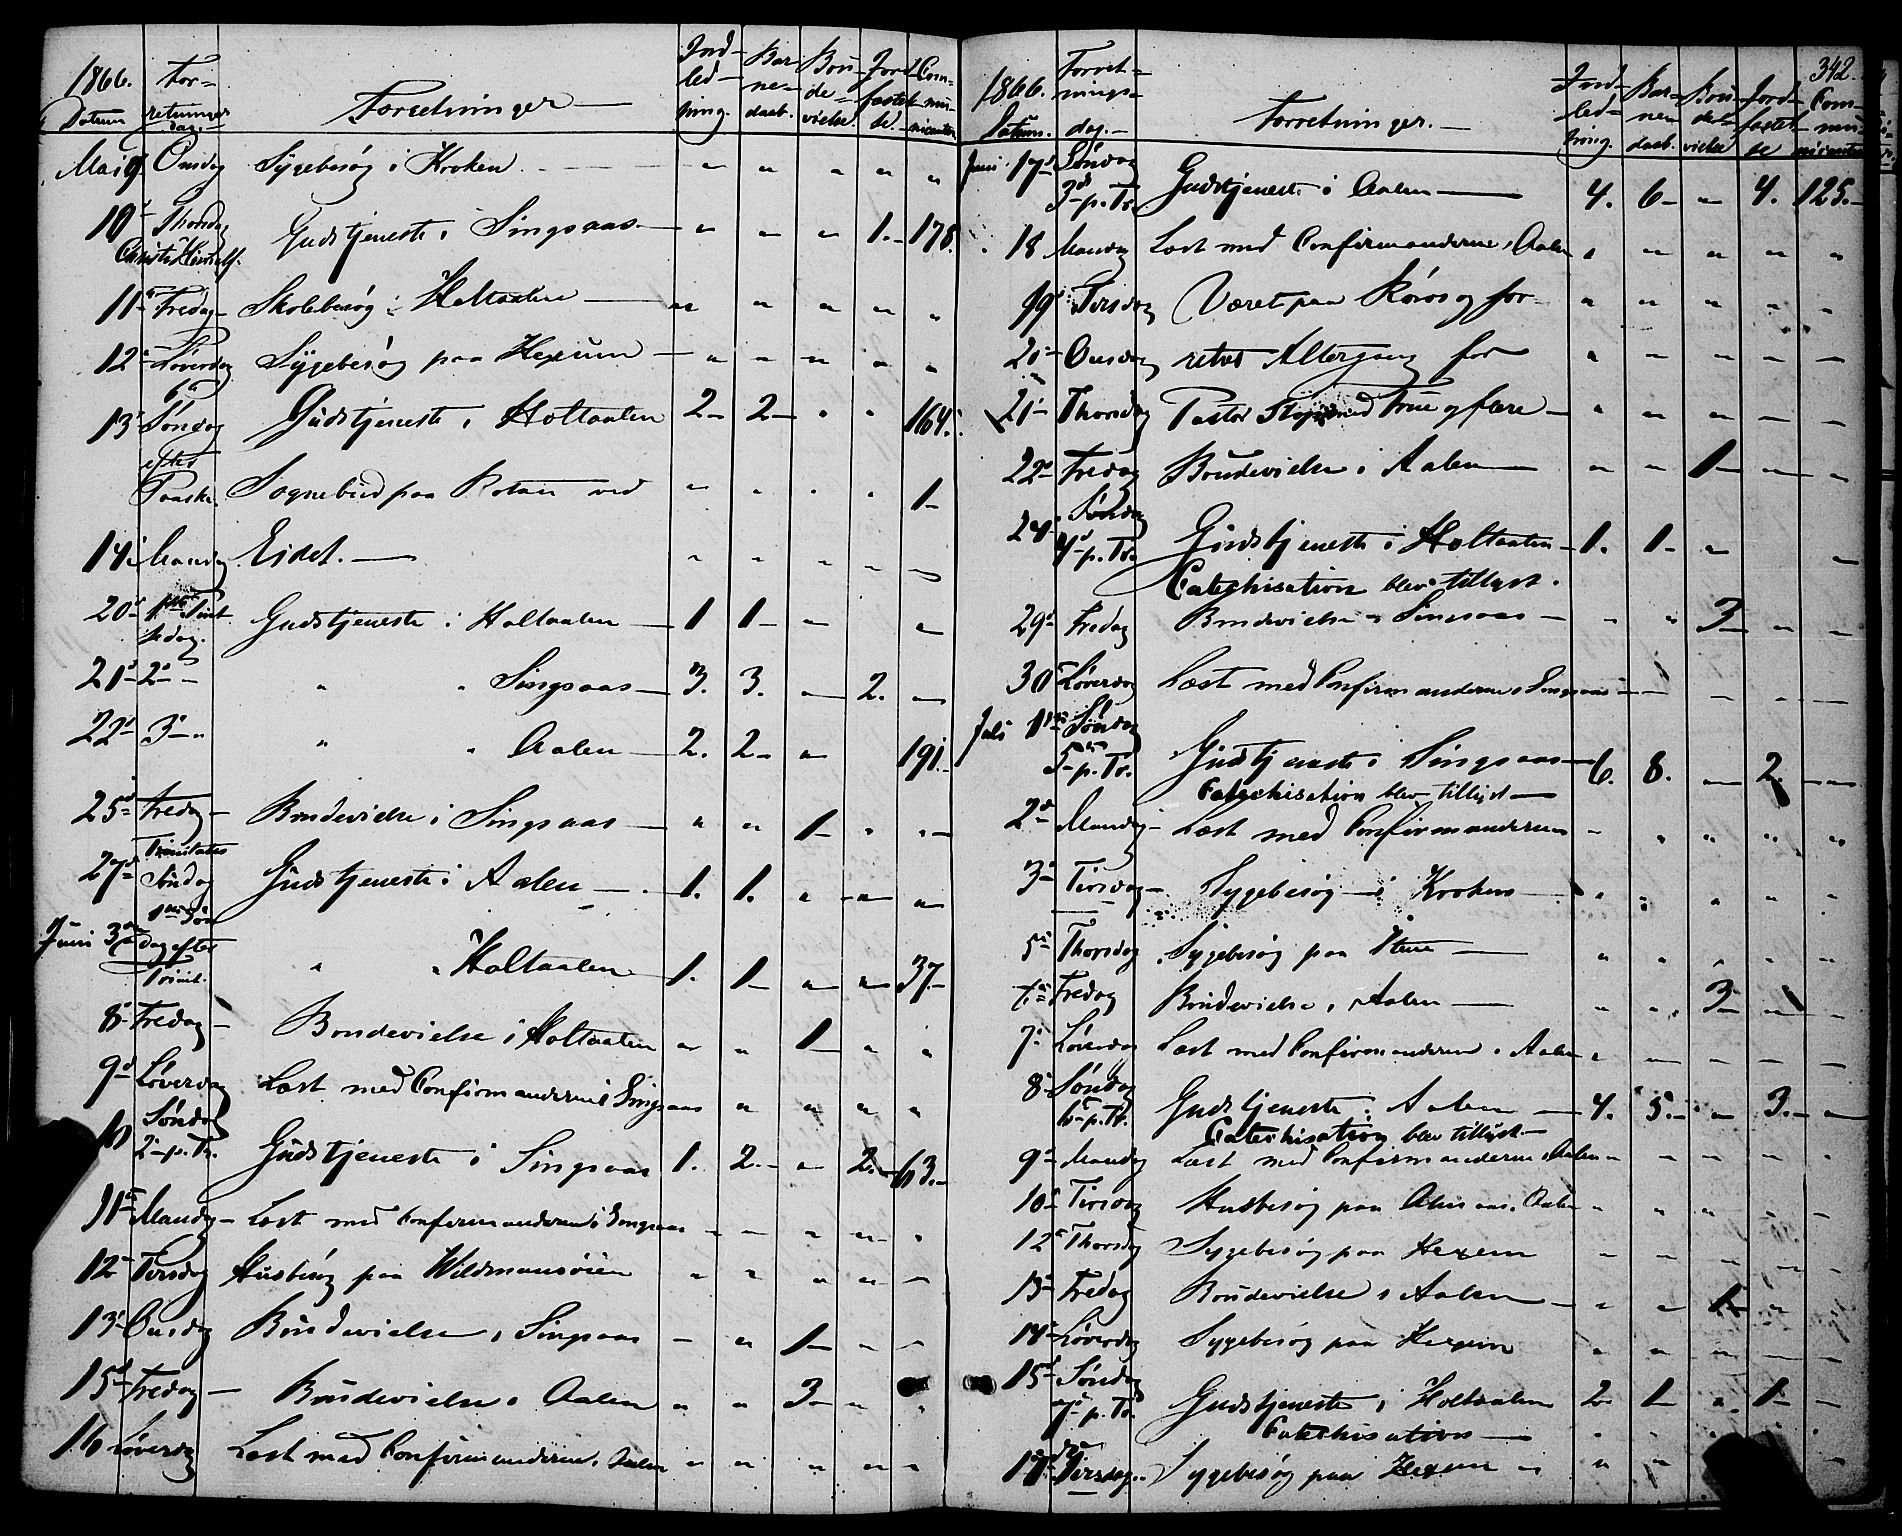 1866. For- Ind- Bar- Bru- Jord- Com-
Datum retninger Forretninger led- ne- de- fæstel- mu-
dag. ning. daab. vielse. se. nicanter
Mai 9 Onsdag Sygebesøg i Kroken " " " " "
10 Thorsdag Gudstjeneste i Singsaas " " " 1. 178.
Christi Himmelf.
11 Fredag Skolebesøg i Holtaalen " " " " "
12 Løverdag Sygebesøg paa Hexum " " " " "
13 6 Søndag Gudstjeneste i Holtaalen 2 2 " " 164.
efter
Paaske. Sognebud paa ved " " " " 1
14 Mandag Eidet. " " " " "
20 1ste Pint- Gudstjeneste i Holtaalen 1 1 " "
sedag.
21 2 " " " Singsaas 3. 3. " 2. "
22 3 " " " Aalen 2. 2 " 191.
25 Fredag Brudevielse i Singsaas " " 1 " "
27 Trinitatis
Søndag Gudstjeneste i Aalen 1. 1. " " "
Juni 3 1ste Søn-
dag efter " " Holtaalen 1. 1 " " 37
Trinit.
8 Fredag Brudevielse i Holtaalen " " 1 " "
9 Løverdag Læst med Confirmanderne i Singsaas " " " "
10 Søndag
2 p. Tr. Gudstjeneste i Singsaas 1. 2. " 2. 63.
11 Mandag Læst med Confirmanderne i Singsaas " " " " "
12 Tirsdag Husbesøg paa Wildmansøien " " " " "
13 Onsdag Brudevielse i Singsaas " " 1 " "
15 Fredag Brudevielse i Aalen " " 3 " "
16 Løverdag Læst med Confirmanderne i Aalen " " " " "
342.
1866. Forret- Ind- Bar- Bru- Jord- Com-
Datum. nings- Forretninger. led- ne- de- fæstel- mu-
dag. ning. daab. vielse se nicanter
Juni 17 Søndag
3 p. Tr. Gudstjeneste i Aalen 4. 6 " 4. 125.
18 Mandag Læst med Confirmanderne i Aalen " " " " "
19 Tirsdag Været paa Røros og for- " " " " "
20 Onsdag rettet Altergang for " " " " "
21 Thorsdag Pastor med Frue og flere " " " " "
22 Fredag Brudevielse i Aalen " " 1 " "
24 Søndag
4 p. Tr. Gudstjeneste i Holtaalen 1. 1 " "
Catechisation blev tillyst.
29 Fredag Brudevielse i Singsaas " " 3 " "
30 Løverdag Læst med Confirmanderne i Singsaas " " " "
Juli 1 Søndag
5 p. Tr. Gudstjeneste i Singsaas 6. 8. " 2. "
Catechisation blev tillyst
2 Mandag Læst med Confirmanderne " " " " "
3 Tirsdag Sygebesøg i Kroken " " " " "
5 Thorsdag Sygebesøg paa " " " " "
6 Fredag Brudevielse i Aalen " " 3 " "
7 Løverdag Læst med Confirmanderne i Aalen " " " " "
8 Søndag
6 p. Tr. Gudstjeneste i Aalen 4. 5. " 3. "
Catechisation blev tillyst.
9 Mandag Læst med Confirmanderne i Aalen " " " " "
10 Tirsdag Husbesøg paa i Aalen " " " " "
12 Thorsdag Sygebesøg paa Hexem " " " " "
13 Fredag Brudevielse i Aalen " " 1 " "
14 Løverdag Sygebesøg paa Hexem " " " " "
15 Søndag
7 p. Tr. Gudstjeneste i Holtaalen 2 1 " 1 "
Catechisation " " " " "
17 Tirsdag Sygebesøg paa Hexem " "